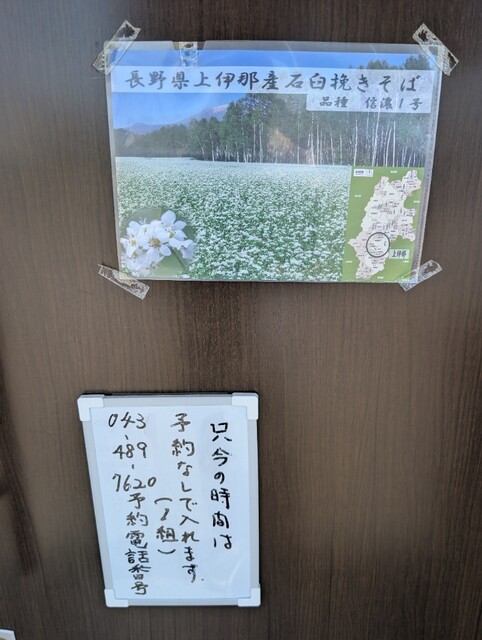 長野県上伊那産石臼挽きそば
品種 信濃1号
上伊那
只今の時間は
予約なしで入れます。
(1組)
043-489-7620予約電話番号